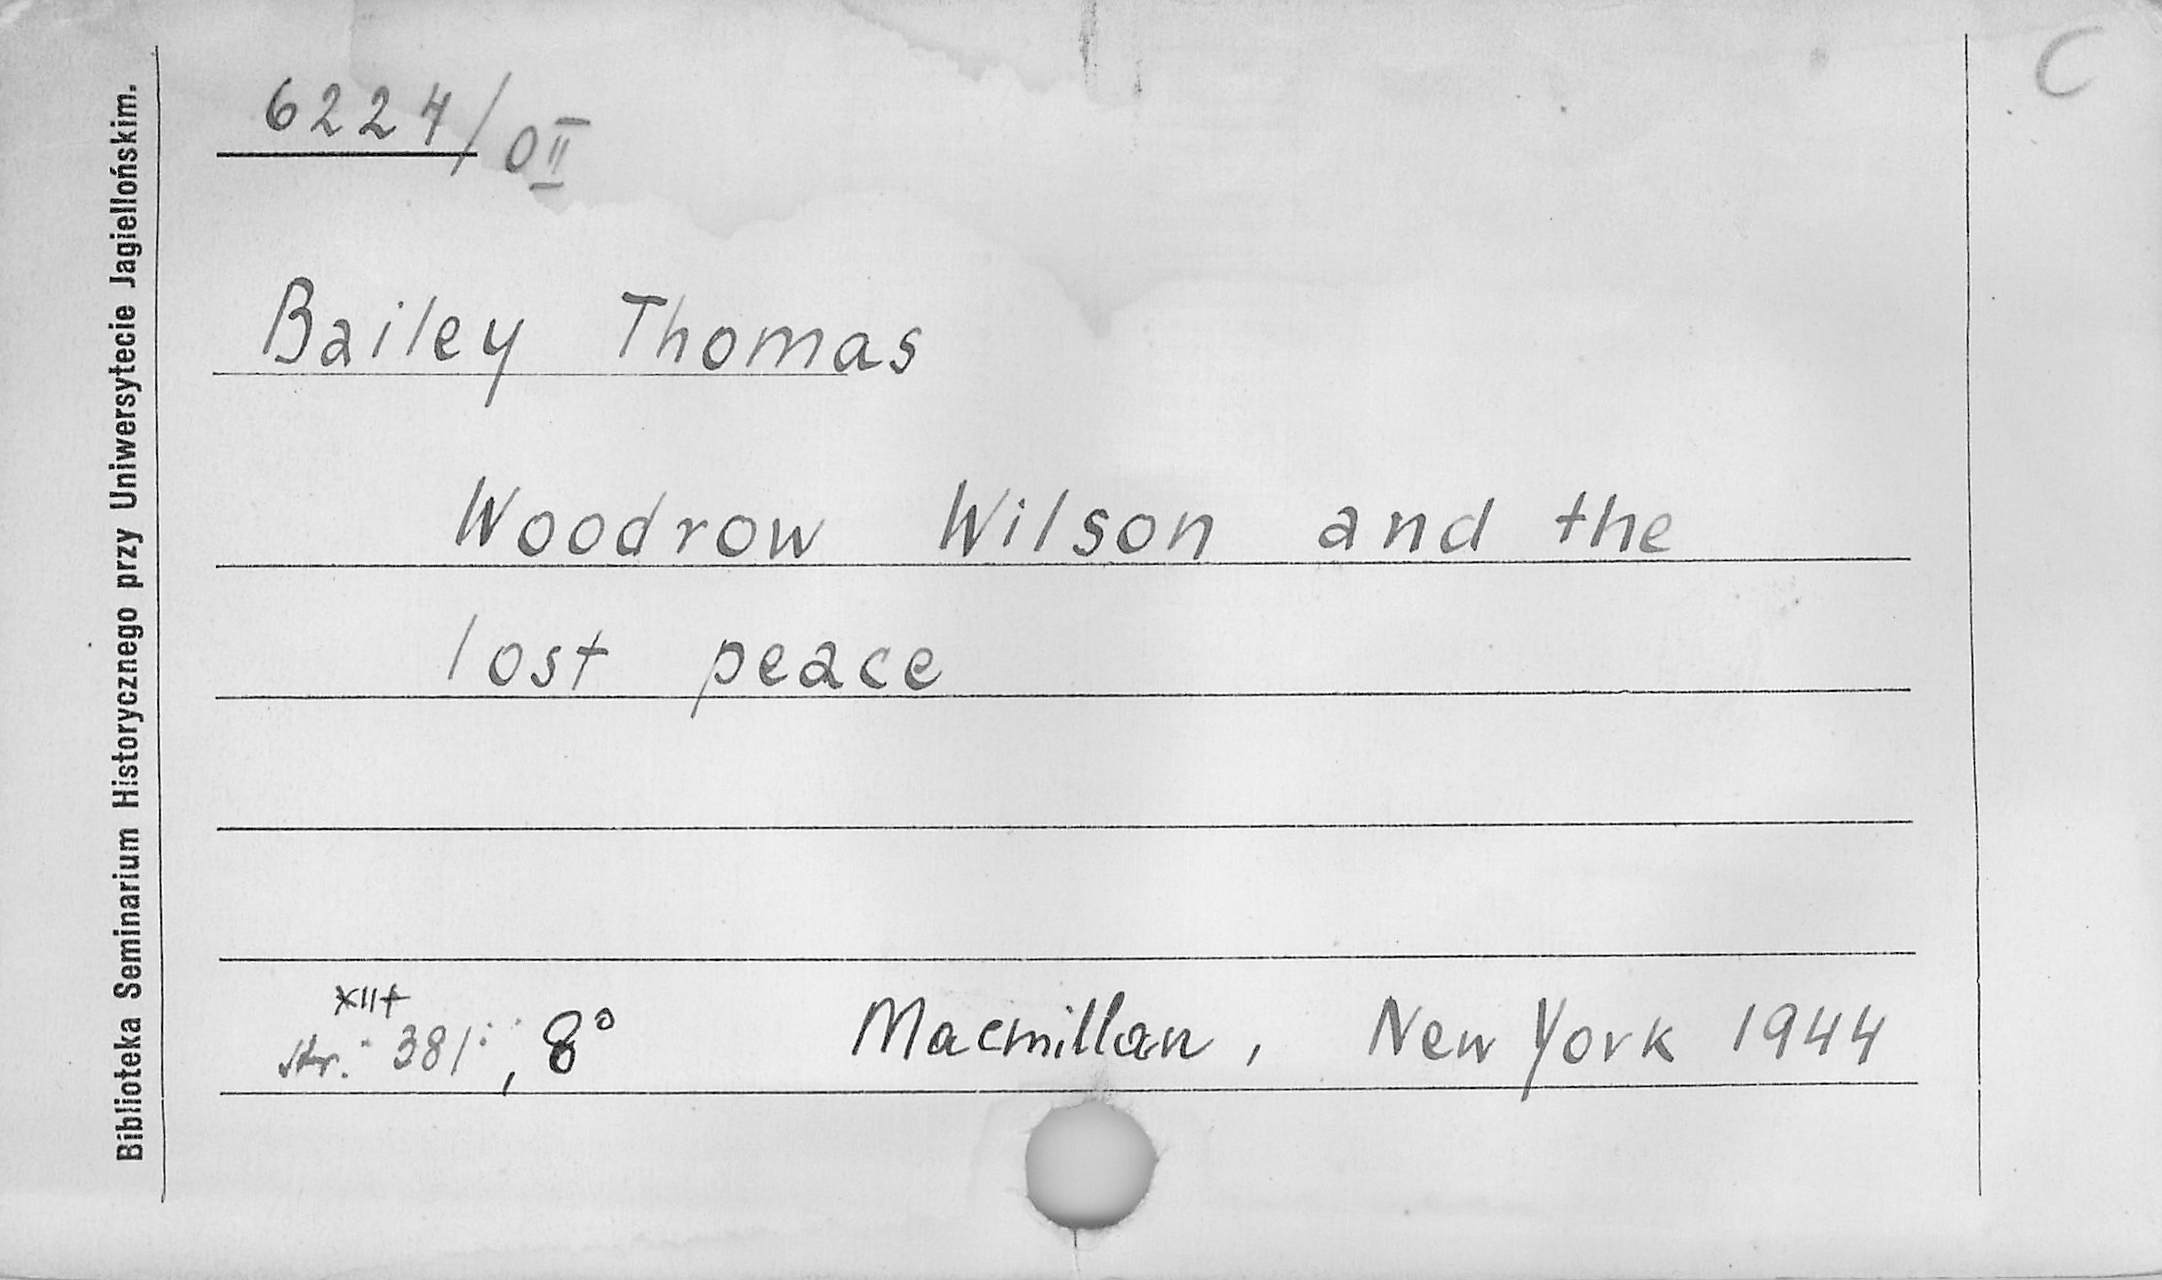 C
6224/OII
Bailey Thomas
Woodrow Wilson and the
lost peace
XII+
str. 381, 8°
Macmillan, New York 1944
Biblioteka Seminarium Historycznego przy Uniwersytecie Jagiellońskim.